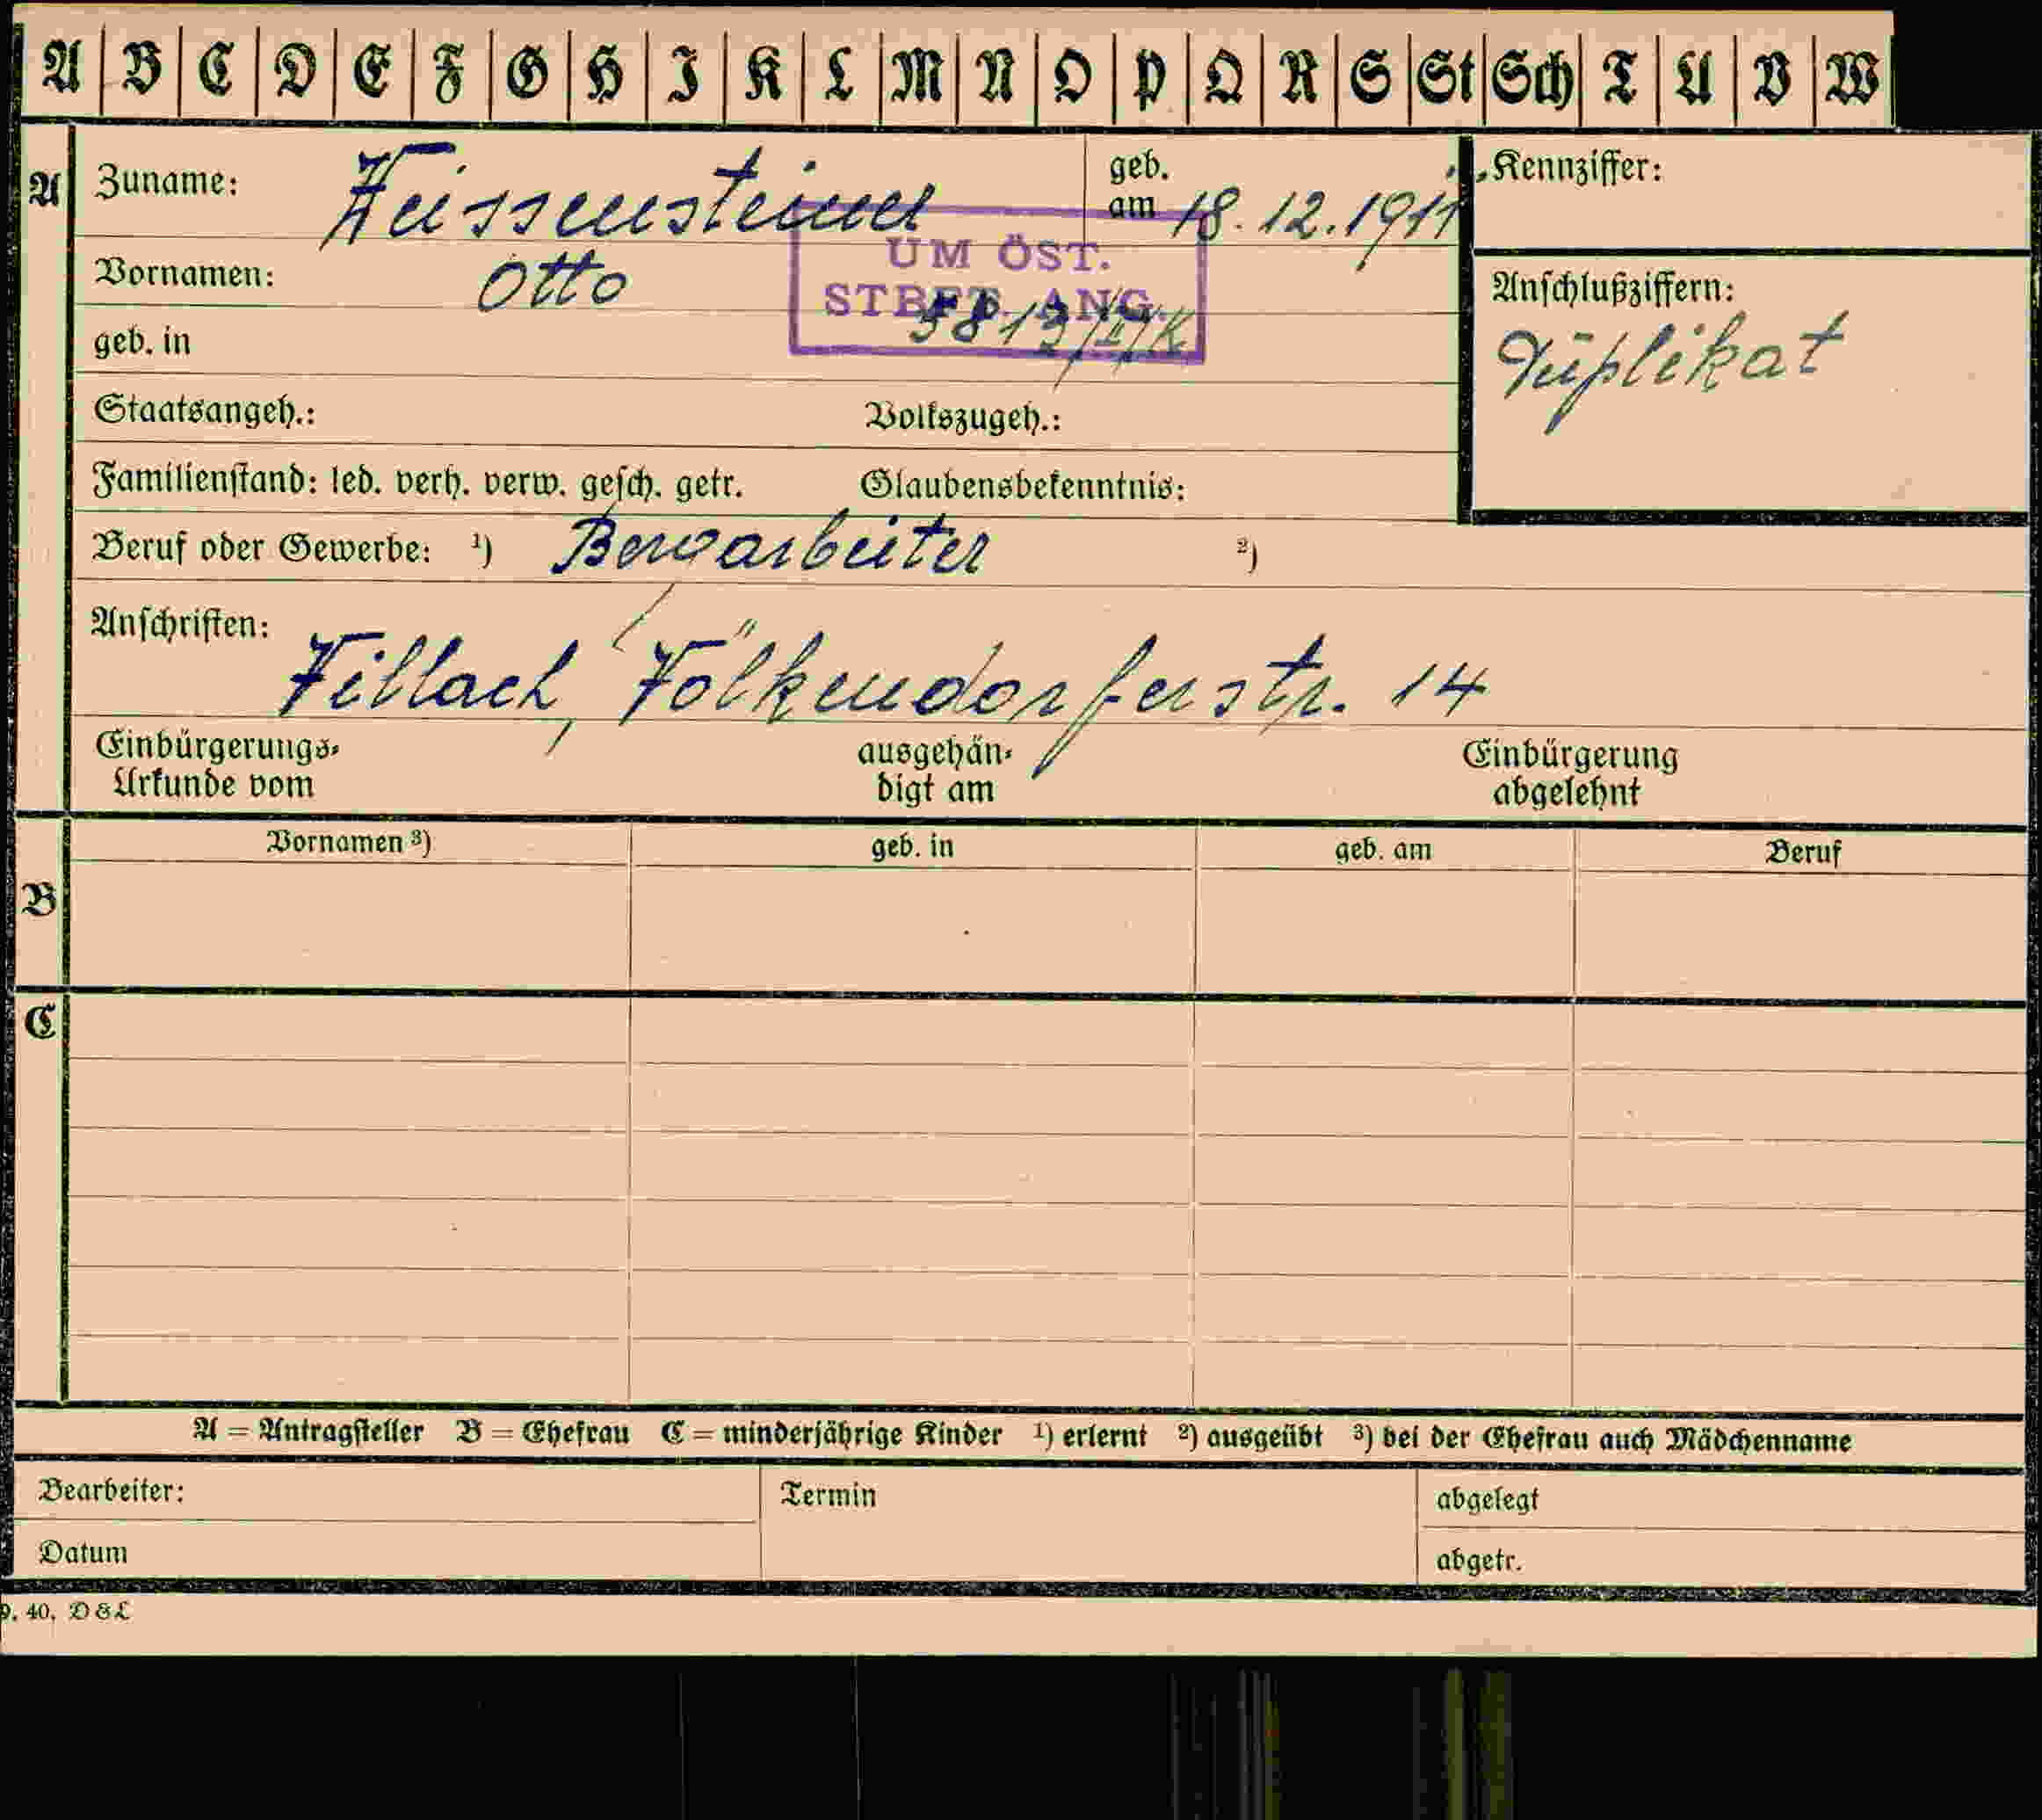 A B C D E F G H I K L M N O P Q R S St Sch T U V W
A
Zuname: Weissensteiner
geb. am 18.12.1911
Kennziffer:
UM ÖST.
STBFT. ANG.
Vornamen: Otto
5813/II/K
Anschlußziffern:
Düplikat
geb. in
Staatsangeh.: Volkszugeh.:
Familienstand: led. verh. verw. gesch. getr. Glaubensbekenntnis:
Beruf oder Gewerbe: ¹) Bergarbeiter ²)
Anschriften:
Villach, Völkendorferstr. 14
Einbürgerungs-
Urkunde vom
ausgehän-
digt am
Einbürgerung
abgelehnt
B
Vornamen ³) geb. in geb. am Beruf
C
A = Antragsteller B = Ehefrau C = minderjährige Kinder ¹) erlernt ²) ausgeübt ³) bei der Ehefrau auch Mädchenname
Bearbeiter: Termin abgelegt
Datum abgetr.
9. 40. D & L